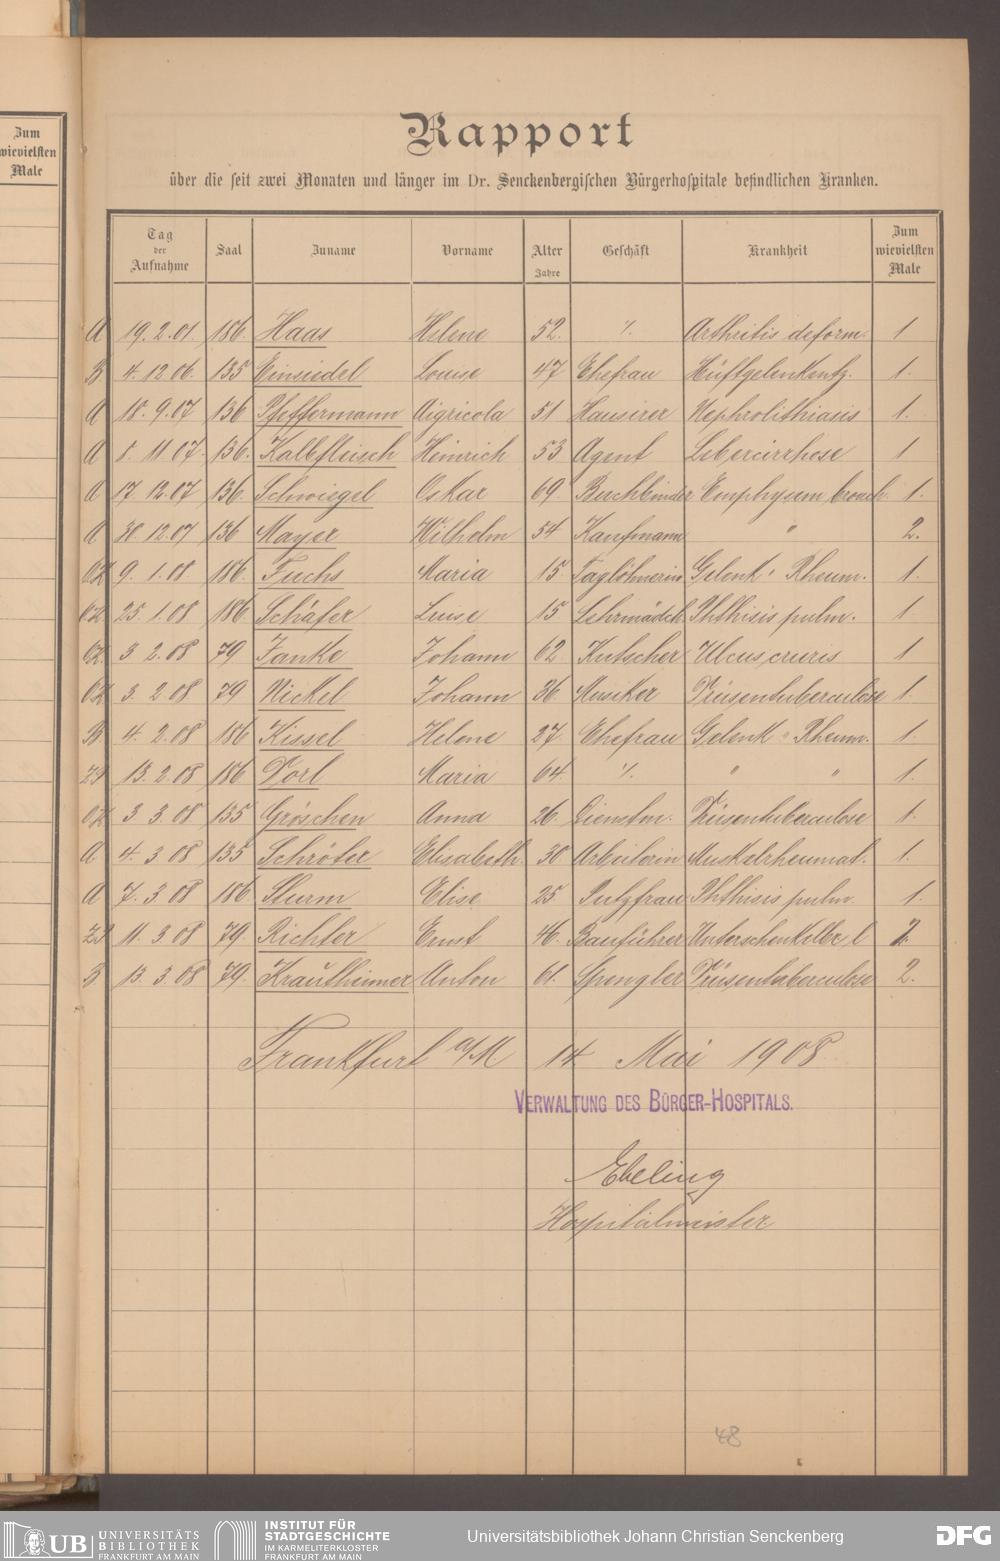 Zum
wievielsten
Male
Rapport
über die seit zwei Monaten und länger im Dr. Senckenbergischen Bürgerhospitale befindlichen Kranken.
Tag der Aufnahme Saal Zuname Vorname Alter Jahre Geschäft Krankheit Zum wievielsten Male
A 19. 2. 01. 186. Haas Helene 52. ·/. Arthritis deform. 1
B. 4. 12 06. 135 Einsiedel Louise 47 Ehefrau Hüftgelenkentz. 1.
A 18. 9. 07 136 Pfeffermann Aigricola 51 Hausirer Nephrolithiasis 1.
A 8. 11 07. 136. Kalbfleisch Heinrich 53 Agent Lebercirrhose 1
A 17 12.07 136. Schwiegel Oskar 69 Buchbinder Emphysem bronch. 1.
A 30. 12.07 136 Mayer Wilhelm 54 Kaufmann " 2.
OZ 9. 1. 08 186. Fuchs Maria 15 Taglöhnerin Gelenk- Rheum. 1.
OZ. 25. 1. 08 186. Schäfer Luise 15 Lehrmädch. Phthisis pulm. 1
OZ. 3 2. 08 79 Janke Johann 62. Kutscher Ulcus cruris 1
OZ 3. 2 08 79 Nickel Johann 36 Musiker Drüsentuberculose 1.
B. 4. 2. 08 186 Kissel Helene 27. Ehefrau Gelenk - Rheum. 1.
13. 2. 08 186. Dorl Maria 64. ·/. " " 1.
OZ 3 3. 08 135 Gröschen Anna 26. Dienstm. Drüsentuberculose 1.
A 4. 3 08 135 Schröter Elisabeth. 30 Arbeiterin Muskelrheumat. 1.
A 7. 3. 08 186. Sturm Elise 25. Putzfrau Phthisis pulm. 1.
11. 3 08 79. Richter Ernst 46. Bauführer Unterschenkelbr. l 2.
B 13 3. 08 79. Krautheimer Anton 61. Spengler Drüsentuberculose 2.
Frankfurt a/M 14. Mai 1908.
VERWALTUNG DES BÜRGER-HOSPITALS.
Ebeling
Hospitalmeister
48
UB UNIVERSITÄTS
BIBLIOTHEK
FRANKFURT AM MAIN
INSTITUT FÜR
STADTGESCHICHTE
IM KARMELITERKLOSTER
FRANKFURT AM MAIN
Universitätsbibliothek Johann Christian Senckenberg
DFG